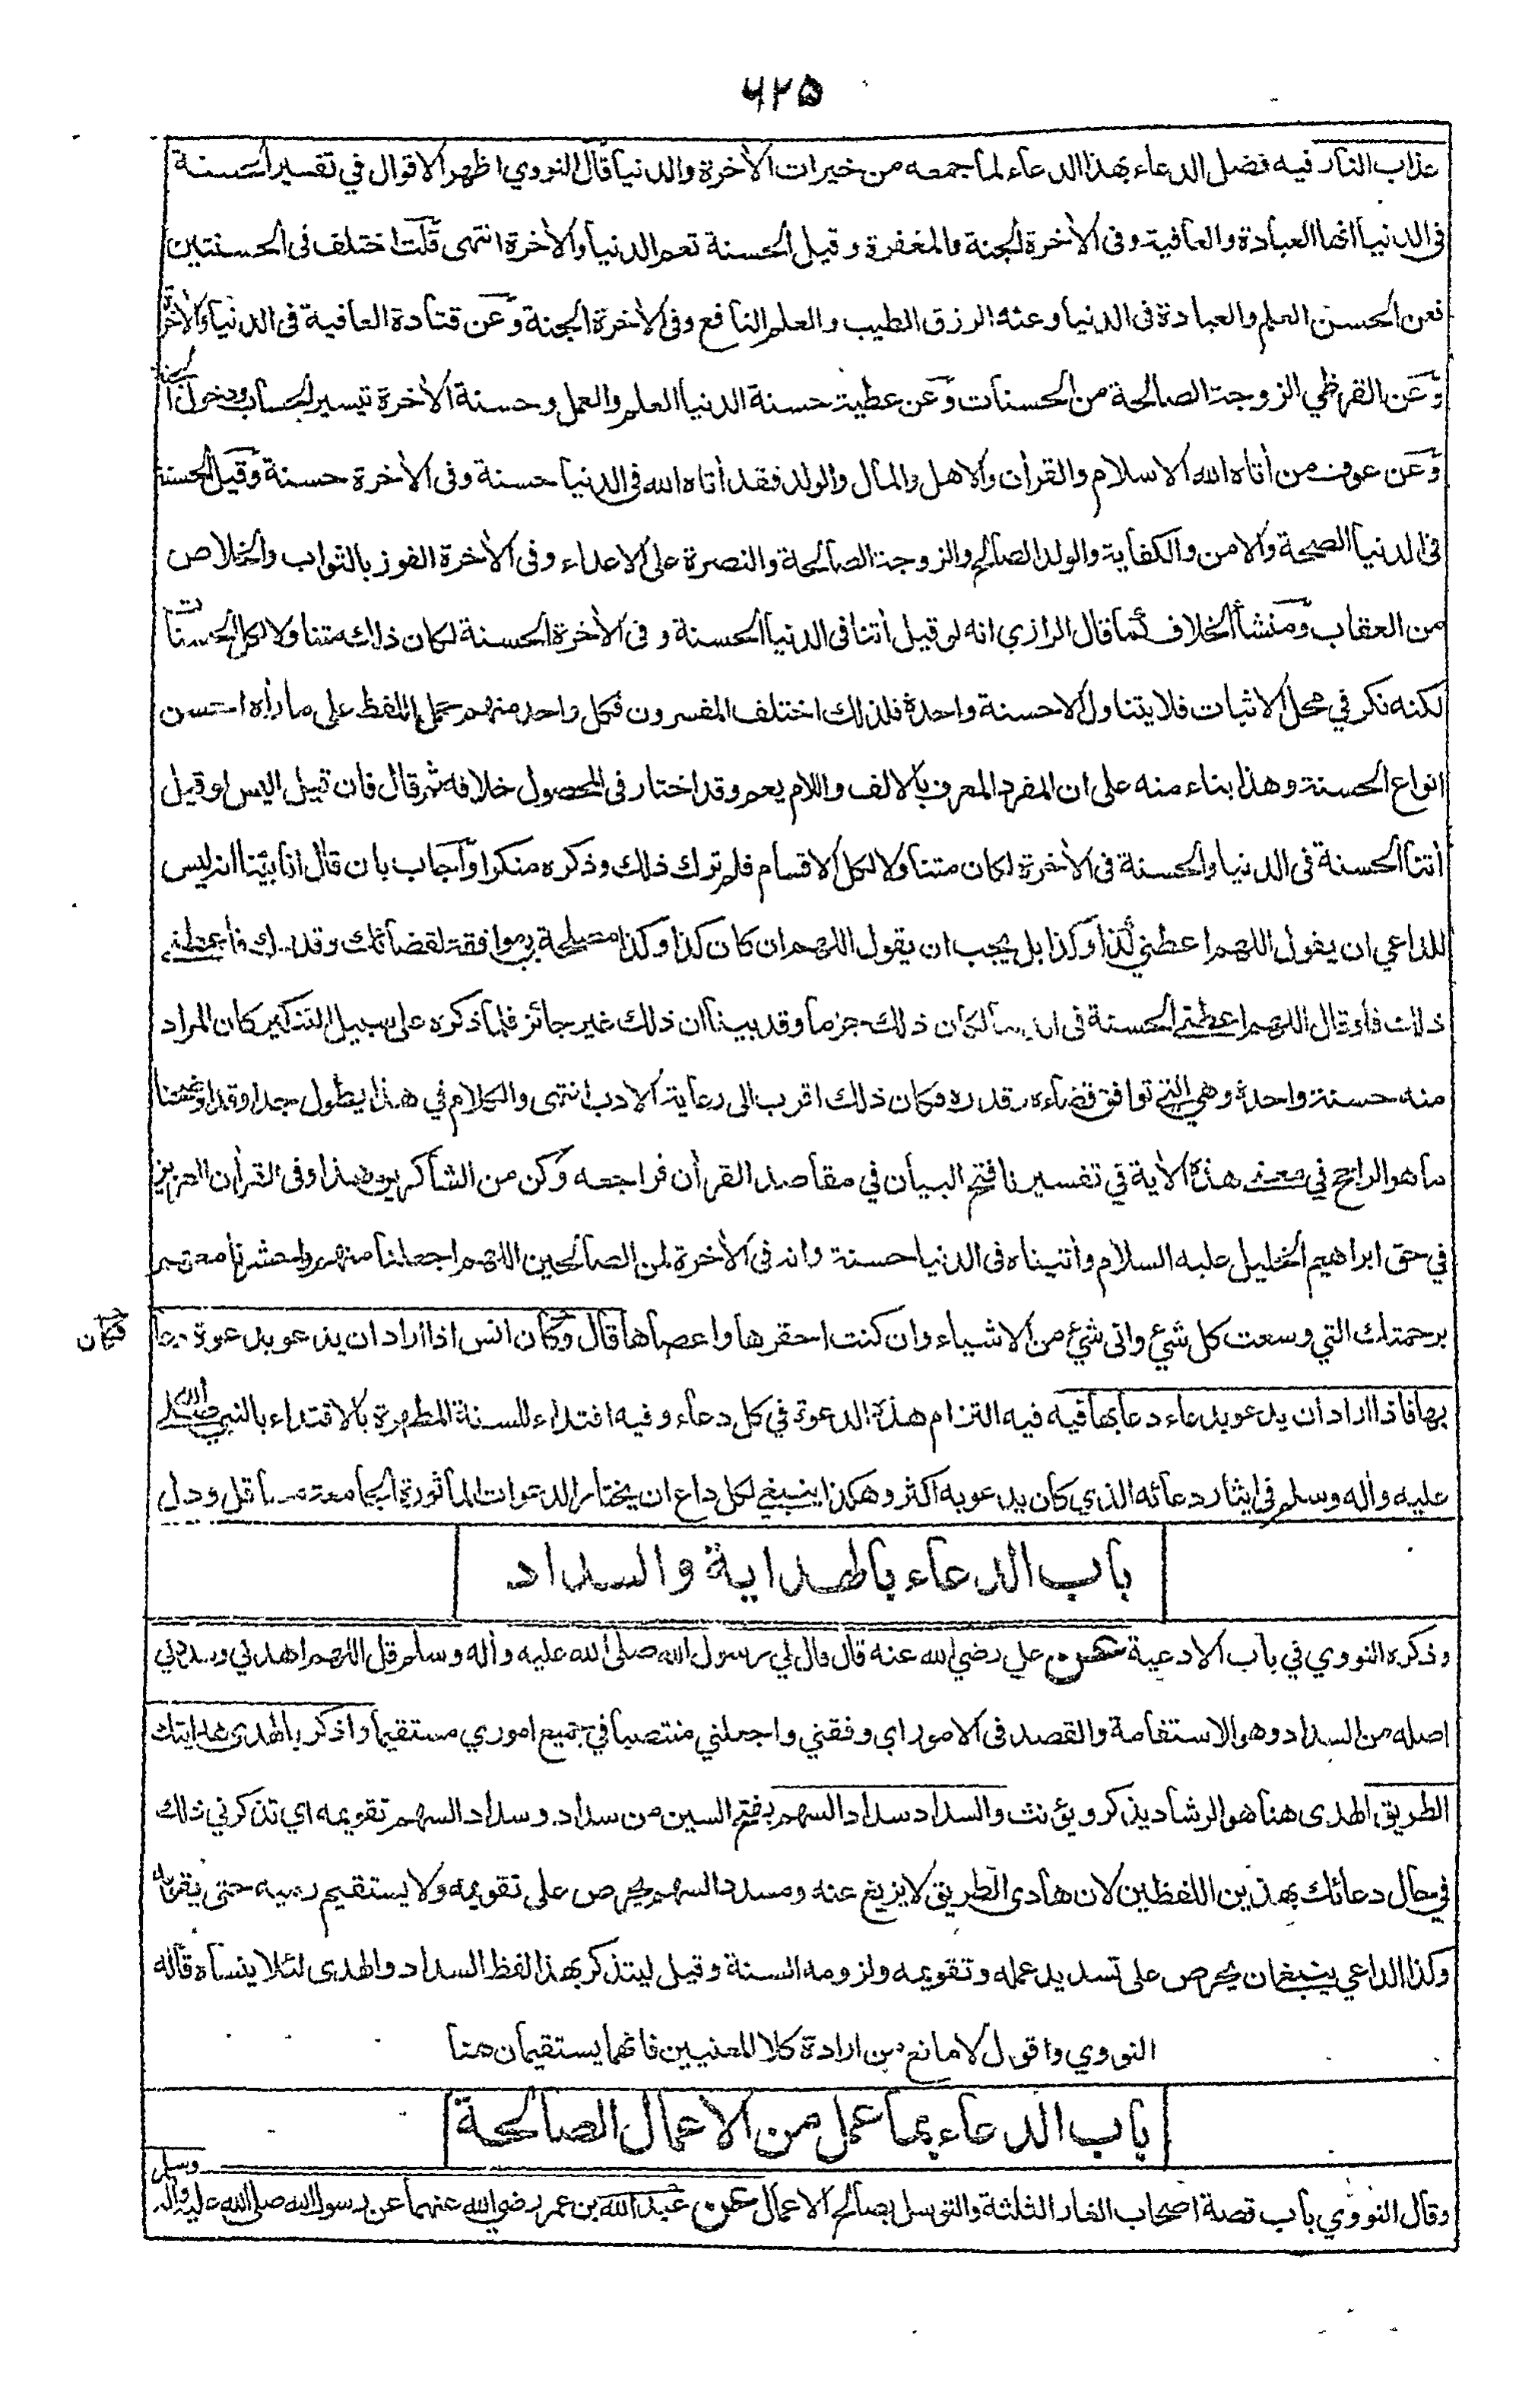 ٦٢٥
عذاب النار فيه فضل الدعاء بهذا الدعاء لما جمعه من خيرات الأخرة والدنيا قال النووي اظهر الاقوال في تفسير الحسنة
فى الدنيا انها العبادة والعافية وفى الأخرة الجنة والمغفرة وقيل الحسنة تعم الدنيا والأخرة انتهى قلت اختلف فى الحسنتين
فعن الحسن العلم والعبادة فى الدنيا وعنه الرزق الطيب والعلم النافع وفى الأخرة الجنة وعن قتادة العافية فى الدنيا والأخرة
وعن القرظي الزوجة الصالحة من الحسنات وعن عطية حسنة الدنيا العلم والعمل وحسنة الأخرة تيسير الحساب ودخول الجنة
وعن عوف من أتاه الله الاسلام والقرأن والاهل والمال والولد فقد أتاه الله فى الدنيا حسنة وفى الأخرة حسنة وقيل الحسنة
فى الدنيا الصحة والامن والكفاية والولد الصالح والزوجة الصالحة والنصرة على الاعداء وفى الأخرة الفوز بالثواب والخلاص
من العقاب ومنشأ الخلاف كما قال الرازي انه لو قيل أتنا فى الدنيا الحسنة وفى الأخرة الحسنة لكان ذلك متناولا لكل الحسنات
لكنه نكر في محل الاثبات فلا يتناول الاحسنة واحدة فلذلك اختلف المفسرون فكل واحد منهم حمل اللفظ على ما رأه احسن
انواع الحسنة وهذا بناء منه على ان المفرد المعرف بالالف واللام يعم وقد اختار فى المحصول خلافه ثم قال فان قيل اليس لو قيل
أتنا الحسنة فى الدنيا والحسنة فى الأخرة لكان متناولا لكل الاقسام فلم ترك ذلك وذكره منكرا واجاب بان قال انا بينا انه ليس
للداعي ان يقول اللهم اعطني كذا وكذا بل يجب ان يقول اللهم ان كان كذا وكذا مصلحة لي وموافقة لقضائك وقدرك فاعطني
ذلك فلو قال اللهم اعطني الحسنة فى الدنيا لكان ذلك جزما وقد بينا ان ذلك غير جائز فلما ذكره على سبيل التنكير كان المراد
منه حسنة واحدة وهي التي توافق قضاءه وقدره فكان ذلك اقرب الى رعاية الادب انتهى والكلام في هذا يطول جدا وقد اوضحنا
ما هو الراجح في معنى هذه الأية في تفسيرنا فتح البيان في مقاصد القرأن فراجعه وكن من الشاكرين هذا وفى القرأن العزيز
في حق ابراهيم الخليل عليه السلام وأتيناه فى الدنيا حسنة وانه فى الأخرة لمن الصالحين اللهم اجعلنا منهم واحشرنا معهم
برحمتك التي وسعت كل شيء وانى شيء من الاشياء وان كنت احقرها واعصاها قال وكان انس اذا اراد ان يدعو بدعوة دعا
فكان
بها فاذا اراد ان يدعو بدعاء دعا بها فيه فيه التزام هذه الدعوة في كل دعاء وفيه اقتداء للسنة المطهرة بالاقتداء بالنبي صلى الله
عليه وأله وسلم فى ايثار دعائه الذي كان يدعو به اكثر وهكذا ينبغي لكل داع ان يختار الدعوات المأثورة الجامعة مما قل ودل
باب الدعاء بالهداية والسداد
وذكره النووي في باب الادعية عن علي رضي الله عنه قال قال لي رسول الله صلى الله عليه وأله وسلم قل اللهم اهدني وسددني
اصله من السداد وهو الاستقامة والقصد فى الامور اي وفقني واجعلني منتصبا في جميع اموري مستقيما واذكر بالهدى هدايتك
الطريق الهدى هنا هو الرشاد يذكر ويؤنث والسداد سداد السهم بفتح السين من سداد وسداد السهم تقويمه اي تذكر في ذلك
في حال دعائك بهذين اللفظين لان هادي الطريق لا يزيغ عنه ومسدد السهم يحرص على تقويمه ولا يستقيم رميه حتى يقومه
وكذا الداعي ينبغي ان يحرص على تسديد عمله وتقويمه ولزومه السنة وقيل ليتذكر بهذا لفظ السداد والهدى لئلا ينساه قاله
النووي واقول لا مانع من ارادة كلا المعنيين فانهما يستقيمان هنا
باب الدعاء بما عمل من الاعمال الصالحة
وقال النووي باب قصة اصحاب الغار الثلثة والتوسل بصالح الاعمال عن عبد الله بن عمر رضي الله عنهما عن رسول الله صلى الله عليه وأله وسلم